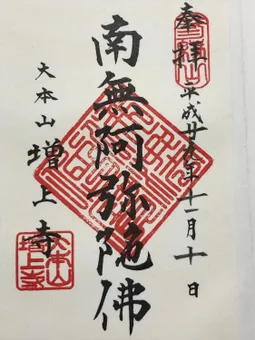 奉拝 平成廿九年十一月十日
南無阿弥陀佛
大本山 増上寺
大本山増上寺